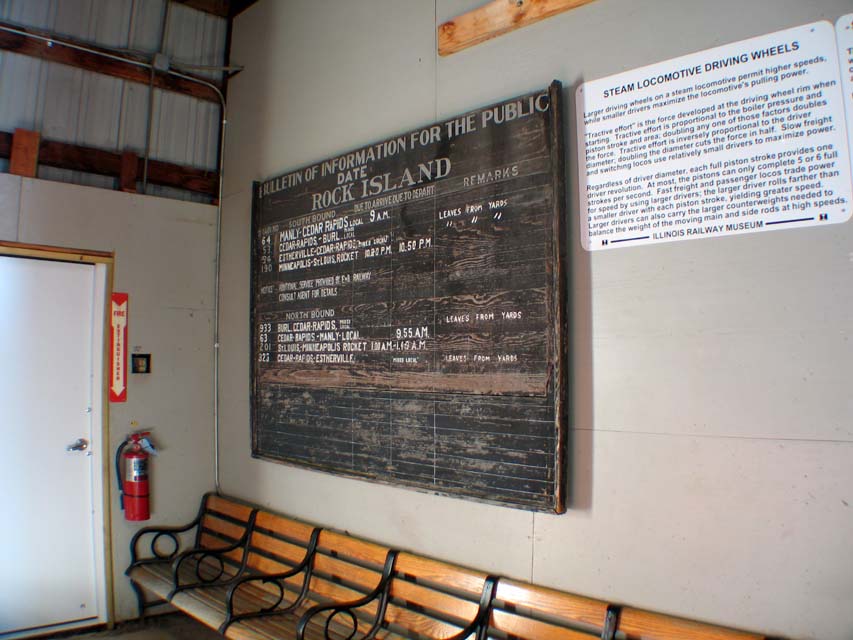 BULLETIN OF INFORMATION FOR THE PUBLIC
DATE
ROCK ISLAND
DUE TO ARRIVE DUE TO DEPART REMARKS
SOUTH BOUND
64 MANLY-CEDAR RAPIDS, LOCAL 9 A.M. LEAVES FROM YARDS
CEDAR-RAPIDS.-BURL. LOCAL " " "
ESTHERVILLE-CEDAR-RAPIDS
190 MINNEAPOLIS-ST.LOUIS, ROCKET 10.20 P.M. 10.50 P.M
NOTICE ADDITIONAL SERVICE PROVIDED BY RAILWAY
CONSULT AGENT FOR DETAILS
NORTH BOUND
933 BURL. CEDAR-RAPIDS, LEAVES FROM YARDS
63 CEDAR-RAPIDS-MANLY-LOCAL 9.55 A.M.
201 ST.LOUIS-MINNEAPOLIS ROCKET 1.01 AM-1.16 A.M
323 CEDAR-RAPIDS-ESTHERVILLE. MIXED LOCAL LEAVES FROM YARDS
STEAM LOCOMOTIVE DRIVING WHEELS
Larger driving wheels on a steam locomotive permit higher speeds,
while smaller drivers maximize the locomotive's pulling power.
"Tractive effort" is the force developed at the driving wheel rim when
starting. Tractive effort is proportional to the boiler pressure and
piston stroke and area; doubling any one of those factors doubles
the force. Tractive effort is inversely proportional to the driver
diameter; doubling the diameter cuts the force in half. Slow freight
and switching locos use relatively small drivers to maximize power.
Regardless of driver diameter, each full piston stroke provides one
driver revolution. At most, the pistons can only complete 5 or 6 full
strokes per second. Fast freight and passenger locos trade power
for speed by using larger drivers; the larger driver rolls farther than
a smaller driver with each piston stroke, yielding greater speed.
Larger drivers can also carry the larger counterweights needed to
balance the weight of the moving main and side rods at high speeds.
ILLINOIS RAILWAY MUSEUM
FIRE
EXTINGUISHER